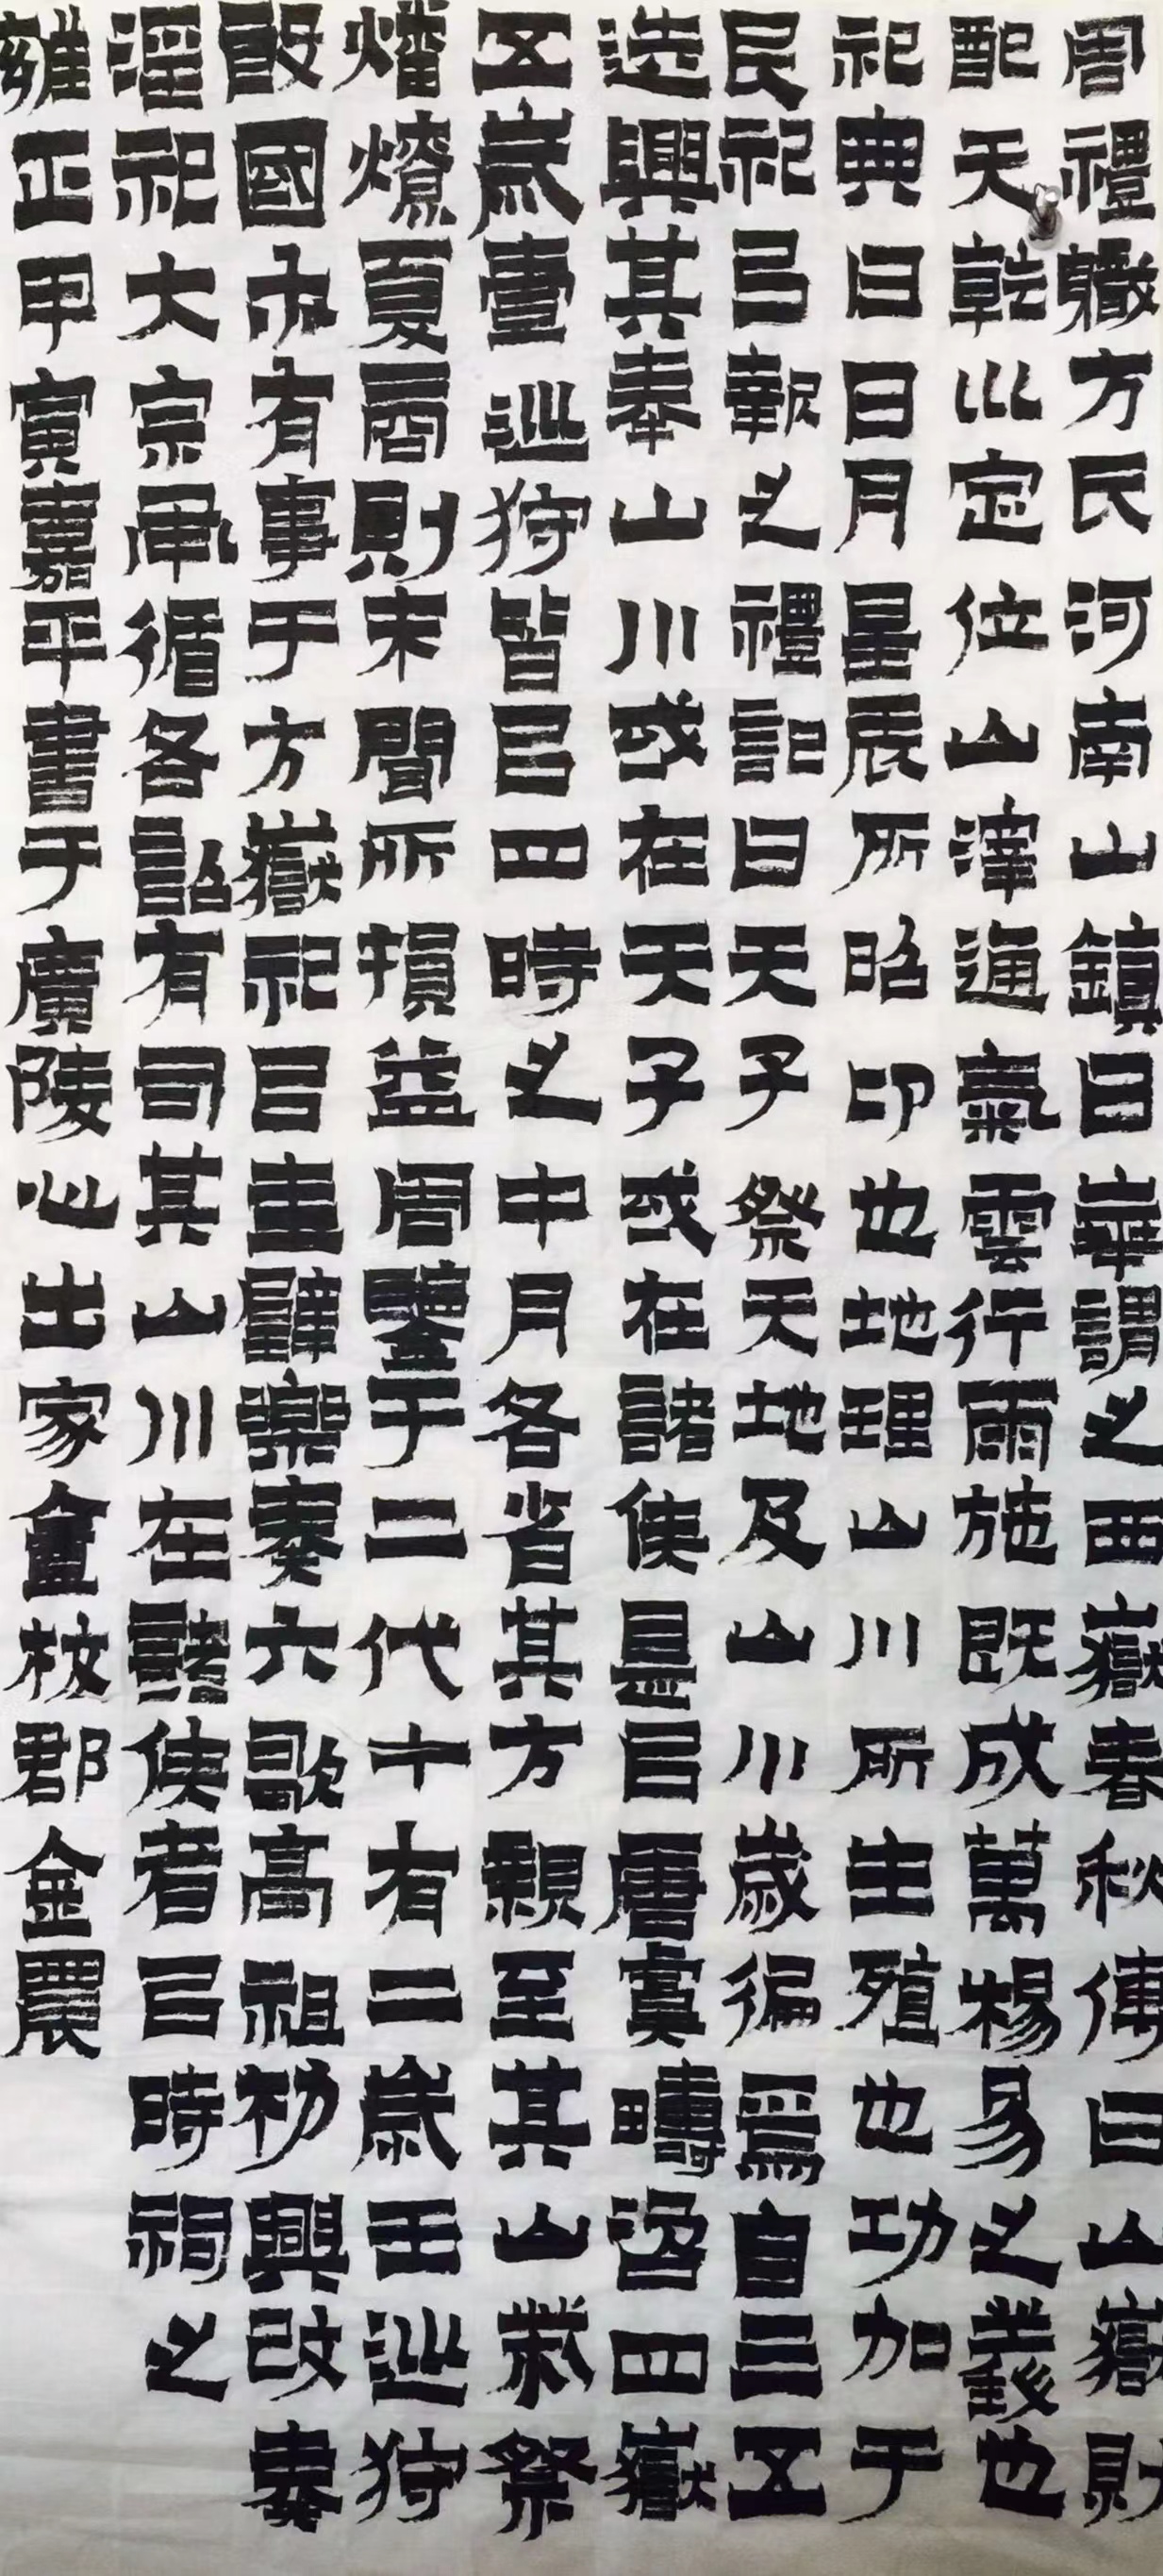 周禮職方氏河南山鎮曰華謂之西嶽春秋傳曰山嶽則
配天乾巛定位山澤通氣雲行雨施既成萬物易之義也
祀典曰日月星辰所昭卬也地理山川所生殖也功加于
民祀㠯報之禮記曰天子祭天地及山川歲徧焉自三五
迭興其奉山川或在天子或在諸侯是㠯唐虞疇咨四嶽
五歲壹巡狩皆㠯四時之中月各省其方親至其山柴祭
燔燎夏商則未聞所損益周鑒于二代十有二歲王巡狩
殷國亦有事于方嶽祀㠯圭璧樂奏六歌高祖初興改秦
淫祀大宗承循各詔有司其山川在諸侯者㠯時祠之
雍正甲寅嘉平書于廣陵心出家盦杭郡金農